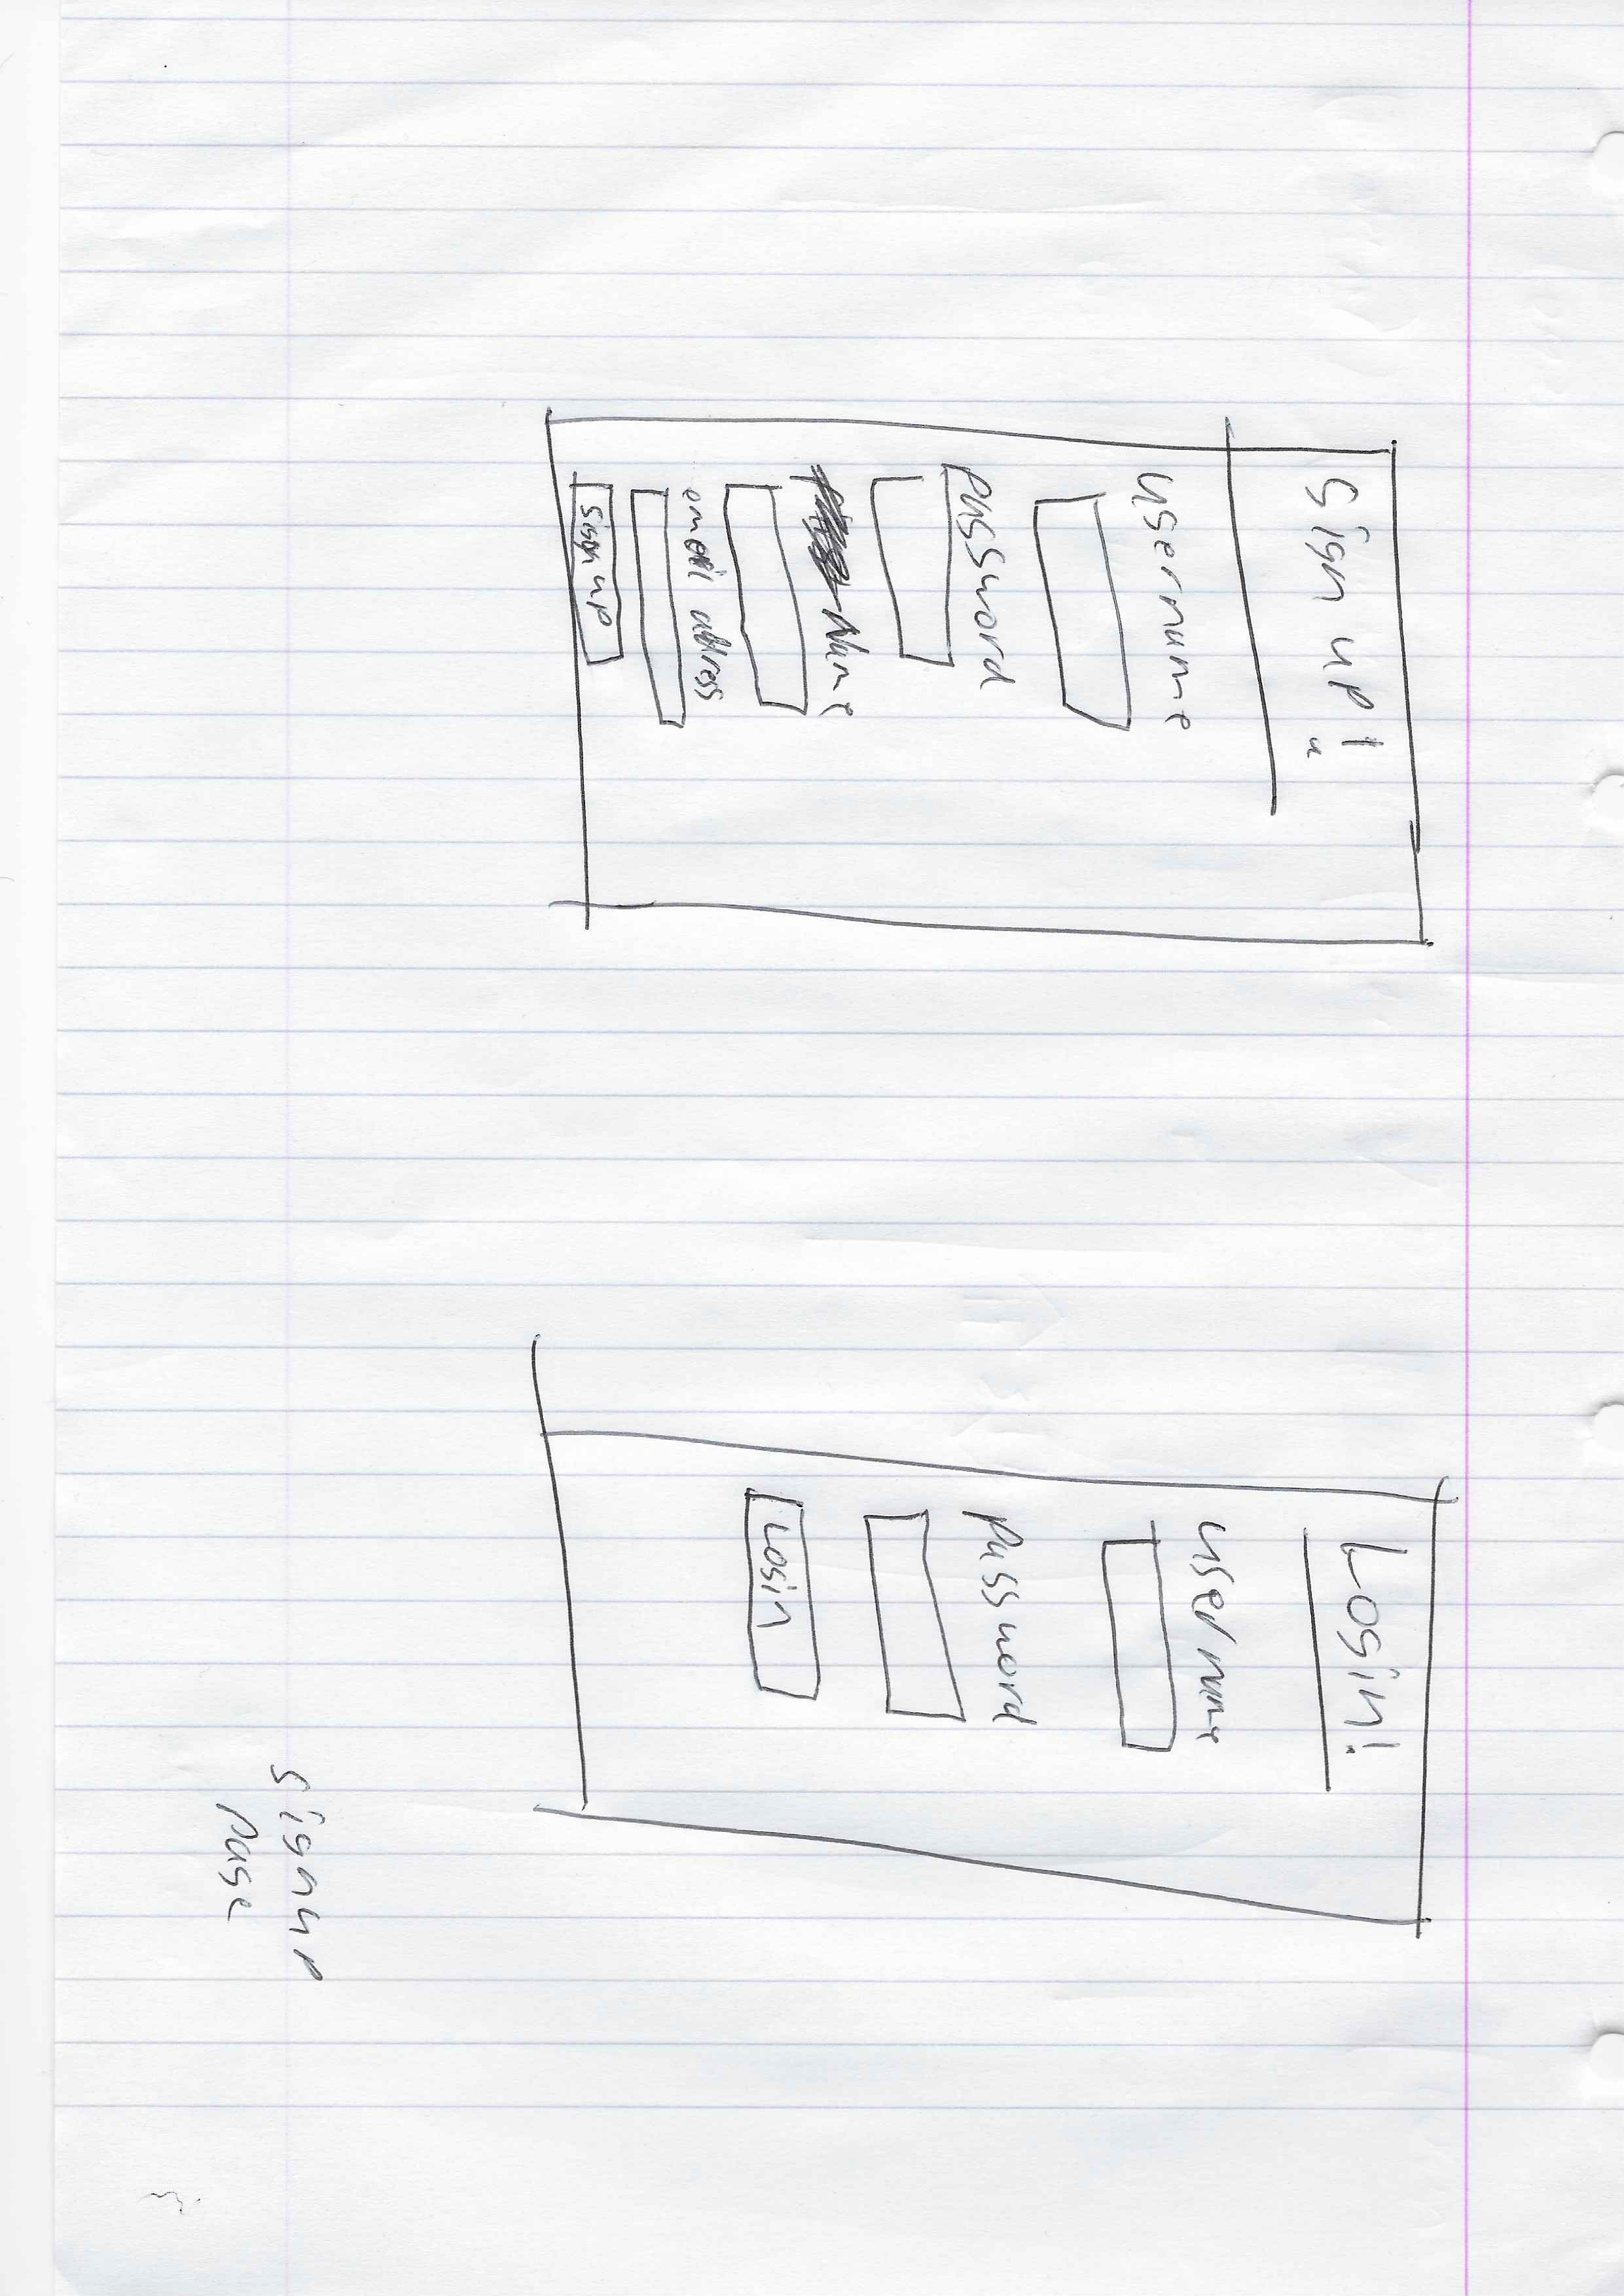 Sign up!
username
password
Name
email address
sign up
Login!
username
password
Login
signup
page